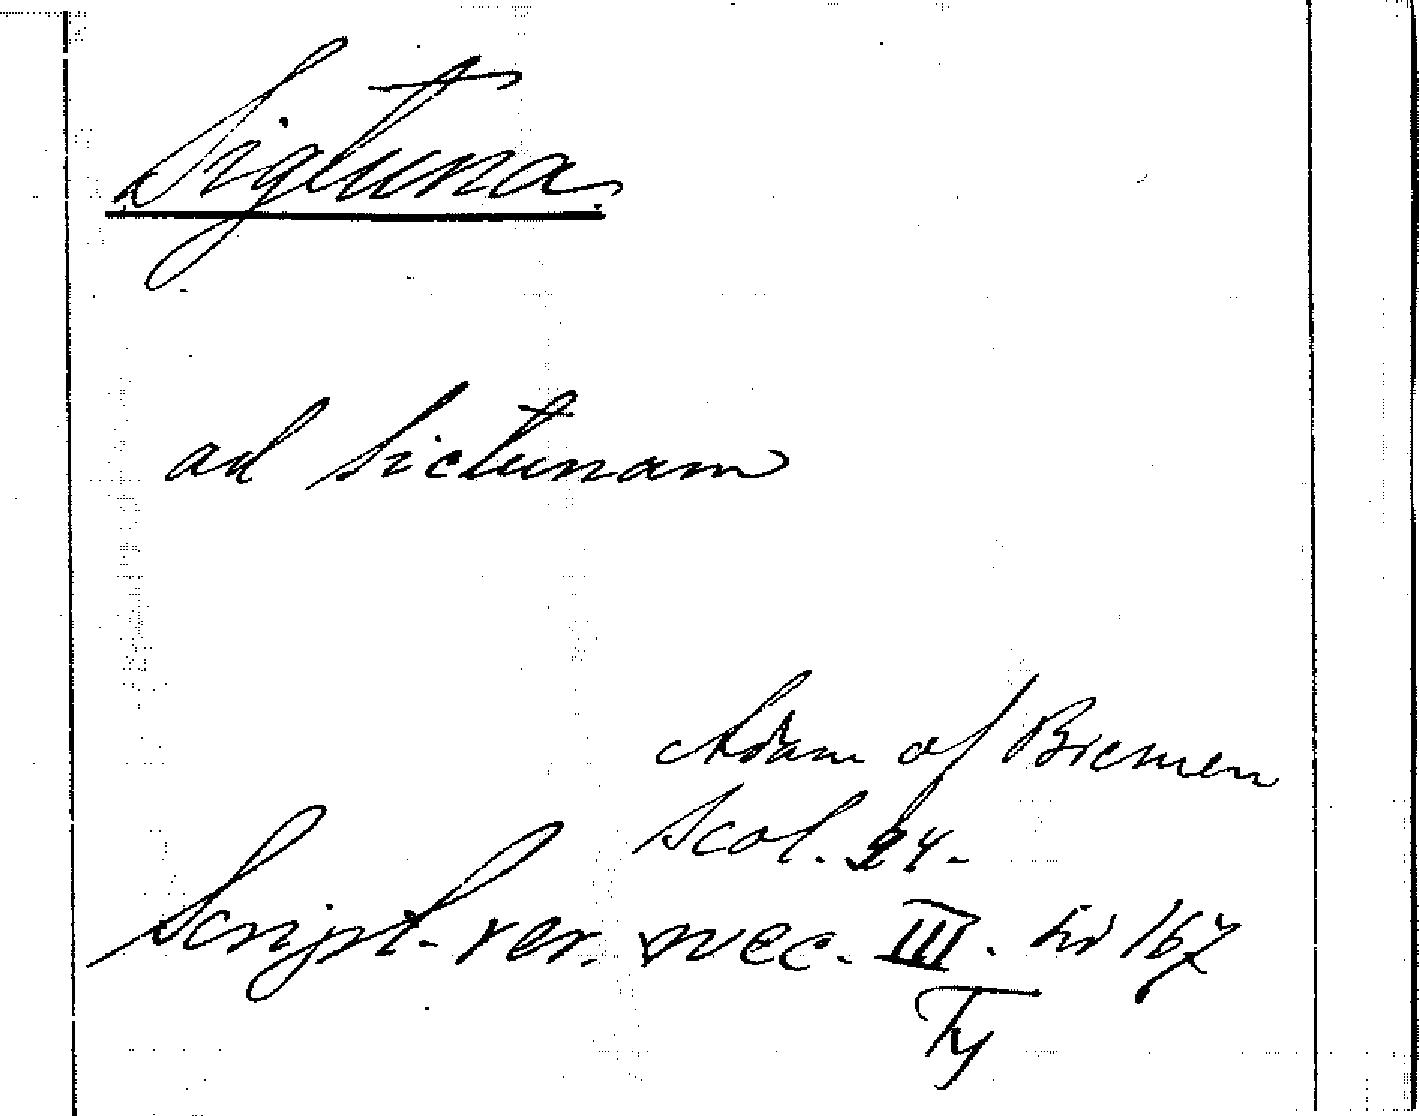 Sigtuna
ad Sictunam
Adam of Bremen
Scol. 24.
Script. rer. svec. III. sid 167
Ty